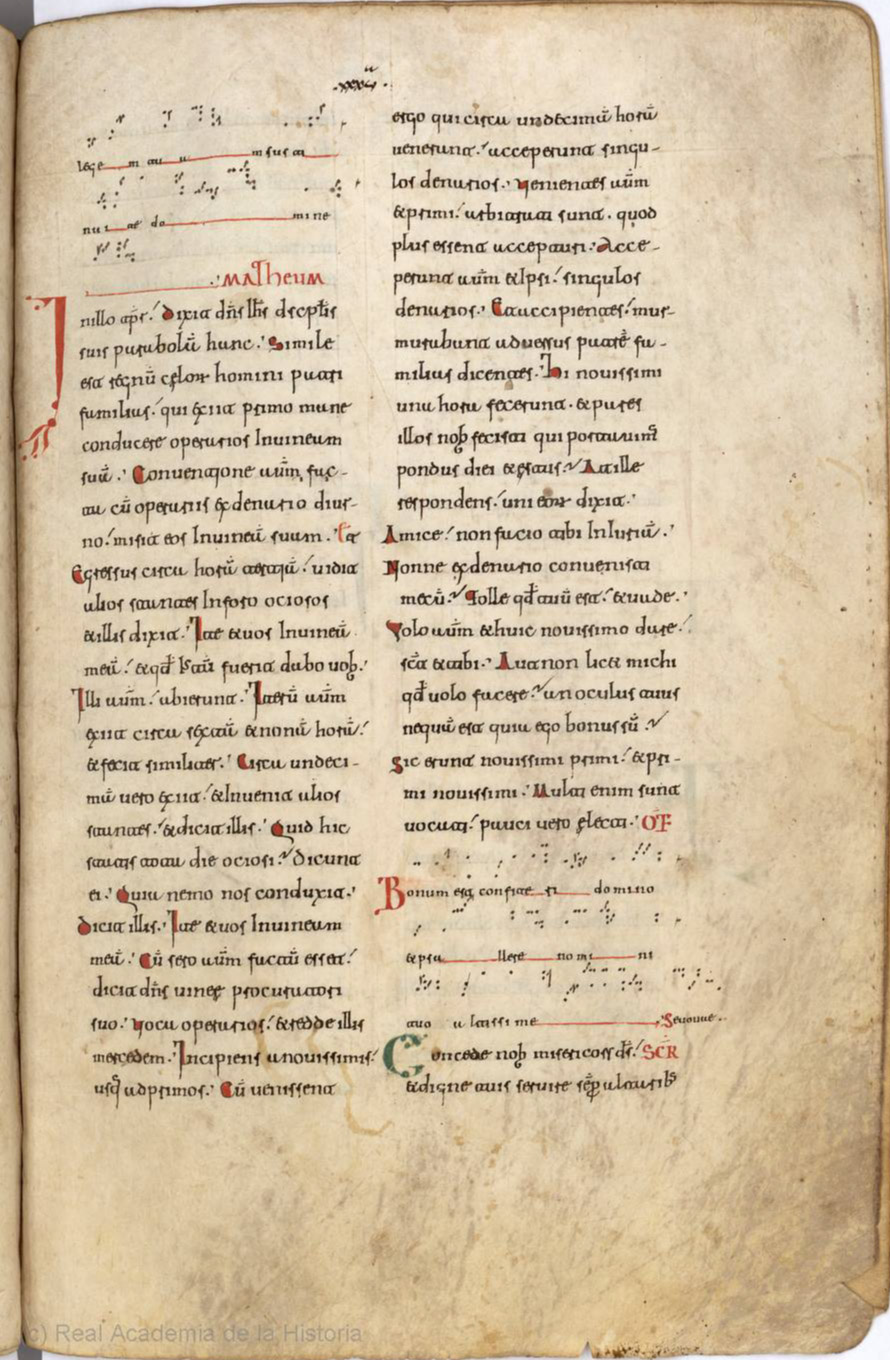 .xxxv.
lege m au u m sus ca
nu i at do mi ne
.· MATheum
In illo t̄p̄r̄. Dixit dn̄s ih̄s dscp̄lis
suis parabolā hanc. Simile
est regnū cęlorum homini patri
familias. qui exiit primo mane
conducere operarios Inuineam
suā. Conuentione aūm fac-
ta cū operariis ex denario diur-
no. misit eos Inuineā suam. Et
Egressus circa horā tertiā. uidit
alios stantes Inforo ociosos
& illis dixit. Ite & uos Inuineā
meā. & qd̄ iustū fuerit dabo uob.
Illi aūm. abierunt. Iterū aūm
exiit circa sextā & nonā horā.
& fecit similiter. Circa undeci-
mā uero exiit. & Inuenit alios
stantes. & dicit illis. Quid hic
statis tota die ociosi. Dicunt
ei. Quia nemo nos conduxit.
Dicit illis. Ite & uos Inuineam
meā. Cū sero aūm factū esset.
dicit dn̄s uineę procuratori
suo. Uoca operarios. & redde illis
mercedem. Incipiens anouissimis.
usq; adprimos. Cū uenissent
ergo qui circa undecimā horā
uenerant. acceperunt singu-
los denarios. Uenientes aūm
& primi. arbitrati sunt. quod
plus essent accepturi. Acce-
perunt aūm & Ipsi. singulos
denarios. Et accipientes. mur-
murabant aduersus patrē fa-
milias dicentes. Hi nouissimi
una hora fecerunt. & pares
illos nob fecisti qui portauim̄
pondus diei & estus. At ille
respondens. uni eorum dixit.
Amice. non facio tibi Iniuriā.
Nonne ex denario conuenisti
mecū. Tolle qd̄ tuū est. & uade.
Uolo aūm & huic nouissimo dare.
sic̄ & tibi. Aut non lic& michi
qd̄ uolo facere. an oculus tuus
nequā est quia ego bonus sū.
Sic erunt nouissimi primi. & pri-
mi nouissimi. Multi enim sunt
uocati. pauci uero electi. OF
Bonum est confite ri domino
& psa llere no mi ni
tuo a ltissi me Seuouae.
Concede nob misericors ds̄. SCR
& digne tuis seruire semp altarib;